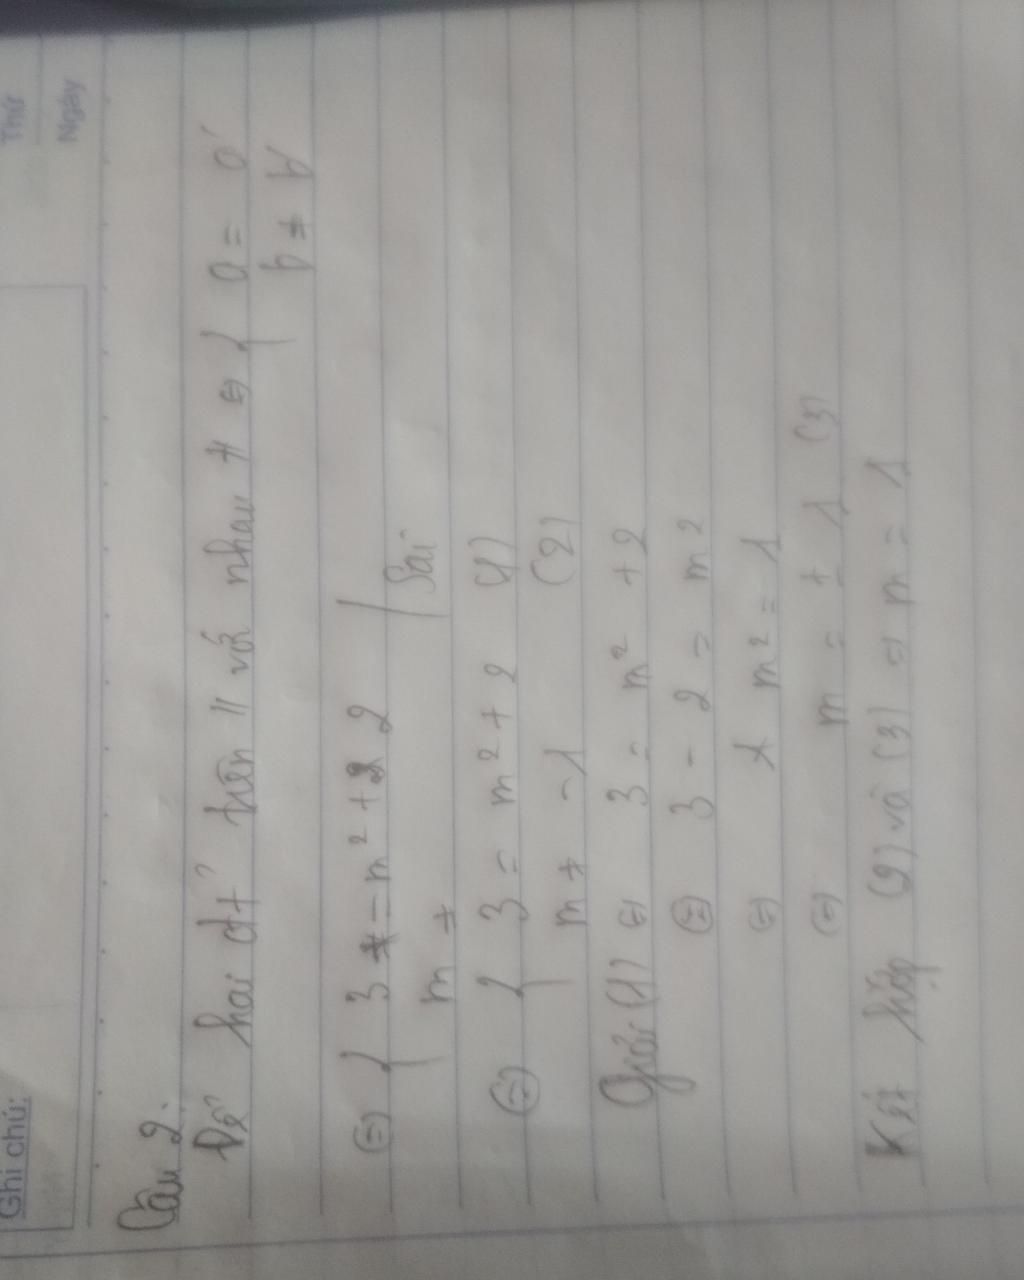 Thứ
Ngày
Ghi chú:
Câu 2.
Để hai đt' trên // với nhau ⇔ { a = a'
b ≠ b'
⇔ { 3 = m² + 2 | Sai
m ≠
⇔ { 3 = m² + 2 (1)
m ≠ -1 (2)
Giải (1) ⇔ 3 = m² + 2
⇔ 3 - 2 = m²
⇔ m² = 1
⇔ m = ± 1 (3)
Kết hợp (2) và (3) ⇒ m = 1